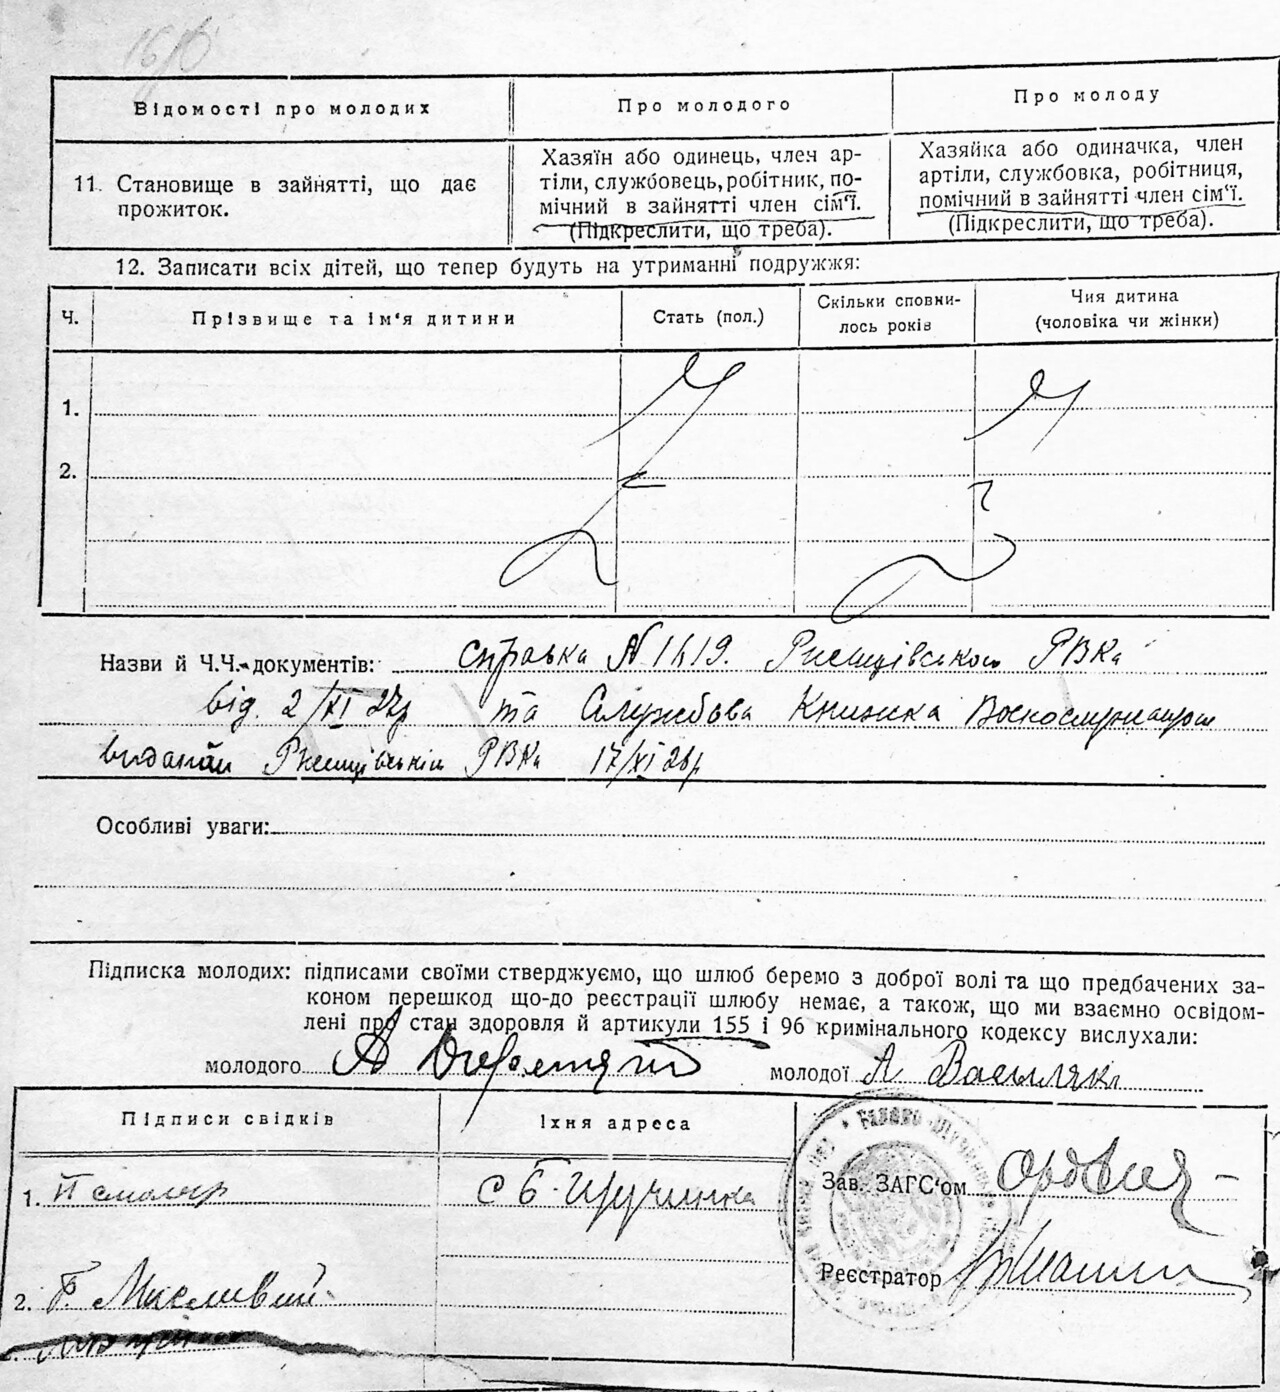 Відомості про молодих
Про молодого
Про молоду
11. Становище в зайнятті, що дає
прожиток.
Хазяїн або одинець, член ар-
тіли, службовець, робітник, по-
мічний в зайнятті член сім'ї.
(Підкреслити, що треба).
Хазяйка або одиначка, член
артіли, службовка, робітниця,
помічний в зайнятті член сім'ї.
(Підкреслити, що треба).
12. Записати всіх дітей, що тепер будуть на утриманні подружжя:
Ч.
Прізвище та ім'я дитини
Стать (пол.)
Скільки сповни-
лось років
Чия дитина
(чоловіка чи жінки)
1.
2.
Назви й Ч.Ч. документів: справка N 1619. Ржищівського РВКа
від. 2/XI 27р та Службова Книжка
видана Ржищівським РВКа 17/XI 26р
Особливі уваги:
Підписка молодих: підписами своїми стверджуємо, що шлюб беремо з доброї волі та що предбачених за-
коном перешкод що-до реєстрації шлюбу немає, а також, що ми взаємно освідом-
лені про стан здоровля й артикули 155 і 96 кримінального кодексу вислухали:
молодого А
молодої А
Підписи свідків
Їхня адреса
1.
с Б.
Зав. ЗАГС'ом
Реєстратор
2. Г. Мисливий